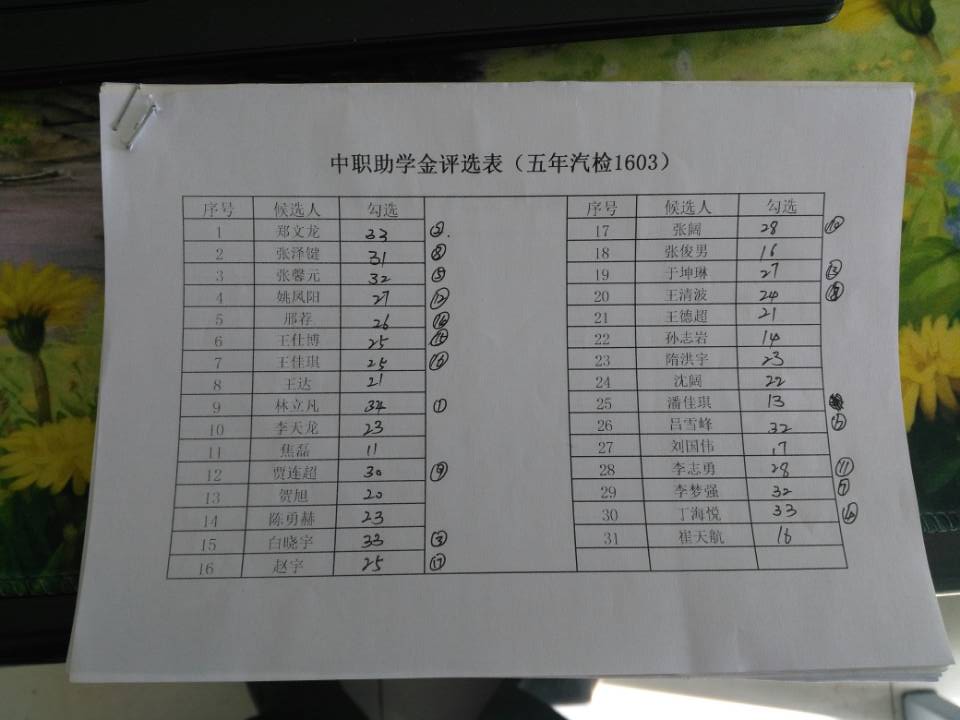 中职助学金评选表（五年汽检1603）
序号 候选人 勾选
1 郑文龙 33 ②
2 张泽键 31 ⑧
3 张馨元 32 ⑤
4 姚凤阳 27 ⑫
5 邢荐 26 ⑭
6 王仕博 25 ⑮
7 王佳琪 25 ⑯
8 王达 21
9 林立凡 34 ①
10 李天龙 23
11 焦磊 11
12 贾连超 30 ⑨
13 贺旭 20
14 陈勇赫 23
15 白晓宇 33 ③
16 赵宇 25 ⑰
序号 候选人 勾选
17 张阔 28 ⑩
18 张俊男 16
19 于坤琳 27 ⑬
20 王清波 24 ⑱
21 王德超 21
22 孙志岩 14
23 隋洪宇 23
24 沈阔 22
25 潘佳琪 13
26 吕雪峰 32
27 刘国伟 17
28 李志勇 28 ⑪
29 李梦强 32 ⑦
30 丁海悦 33
31 崔天航 16